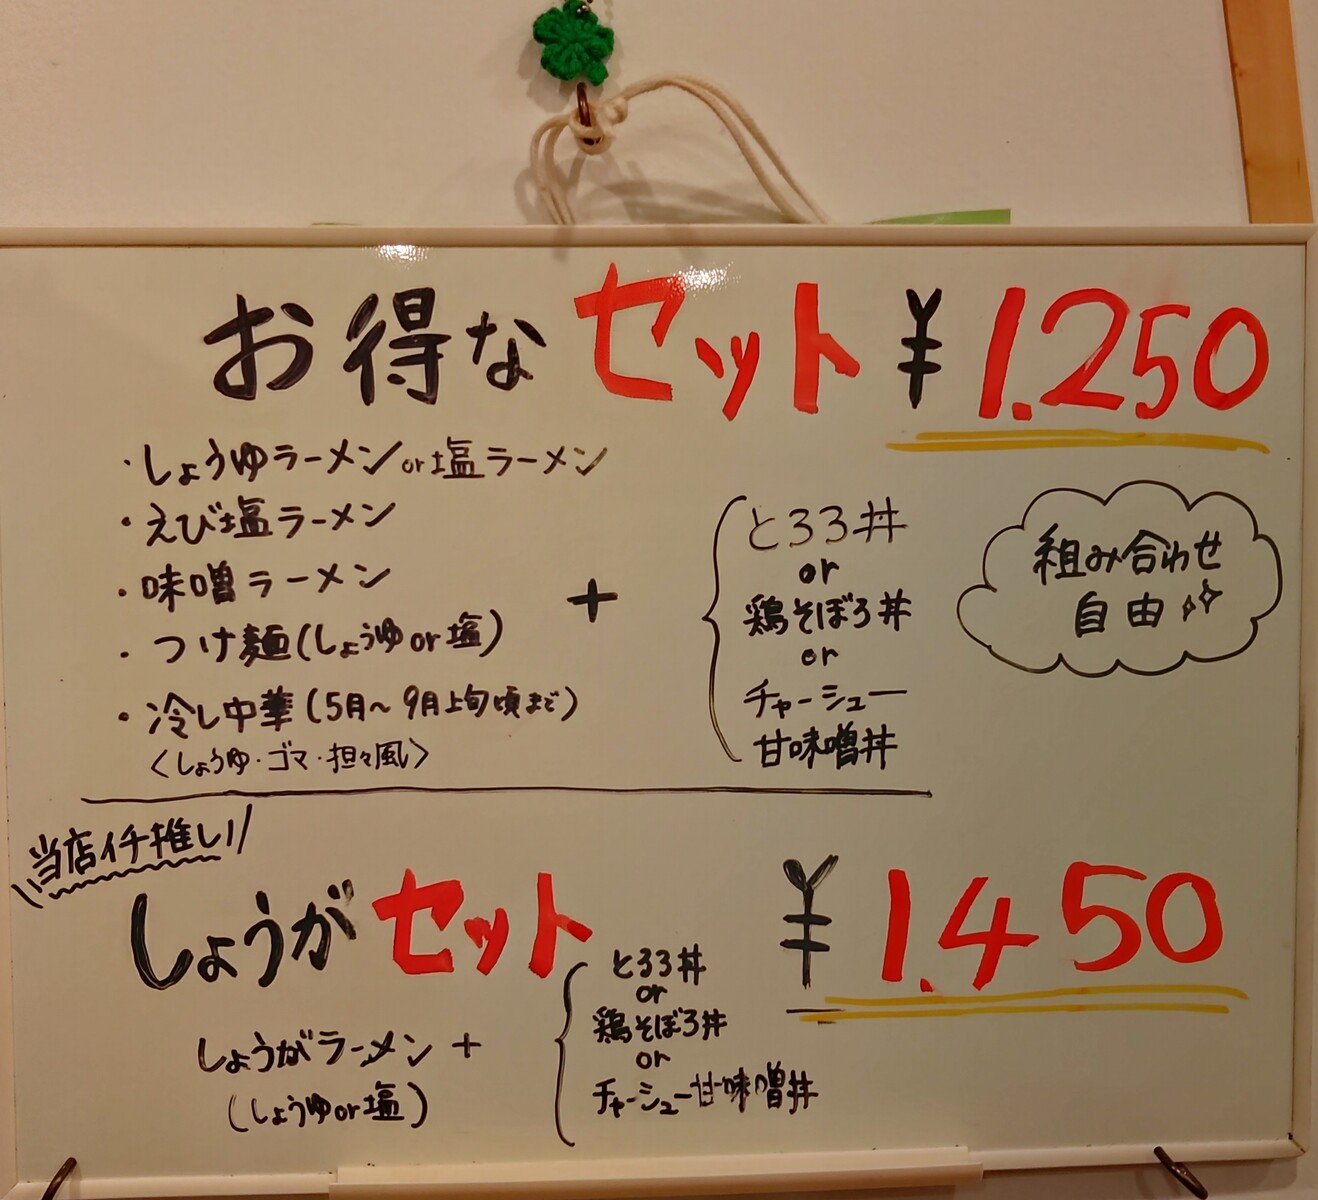 お得なセット ¥1.250
・しょうゆラーメンor塩ラーメン
・えび塩ラーメン
・味噌ラーメン
・つけ麺(しょうゆor塩)
・冷し中華(5月〜9月上旬頃まで)
〈しょうゆ・ゴマ・担々風〉
+
とろろ丼
or
鶏そぼろ丼
or
チャーシュー
甘味噌丼
組み合わせ
自由
当店イチ推し
しょうがセット ¥1.450
しょうがラーメン +
(しょうゆor塩)
とろろ丼
or
鶏そぼろ丼
or
チャーシュー甘味噌丼